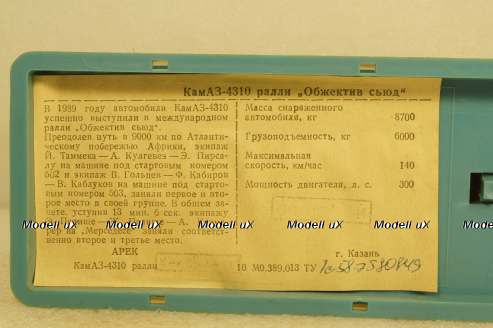 КамАЗ-4310 ралли „Обжектив сьюд“
В 1989 году автомобили КамАЗ-4310
успешно выступили в международном
ралли „Обжектив сьюд“.
Преодолев путь в 9000 км по Атланти-
ческому побережью Африки, экипаж
Й. Таммека — А. Куагевез — Э. Пирса-
лу на машине под стартовым номером
502 и экипаж В. Гольцев — Ф. Кабиров
— В. Каблуков на машине под старто-
вым номером 503, заняли первое и вто-
рое место в своей группе. В общем за-
чете, уступив 13 мин. 6 сек. экипажу
А.
рер на „Мерседесе“ заняли соответст-
венно второе и третье место.
АРЕК
КамАЗ-4310 ралли
Масса снаряженного
автомобиля, кг 8700
Грузоподъемность, кг 6000
Максимальная
скорость, км/час 140
Мощность двигателя, л. с. 300
г. Казань
10 М0.389.013 ТУ
Modell uX Modell uX Modell uX Modell uX